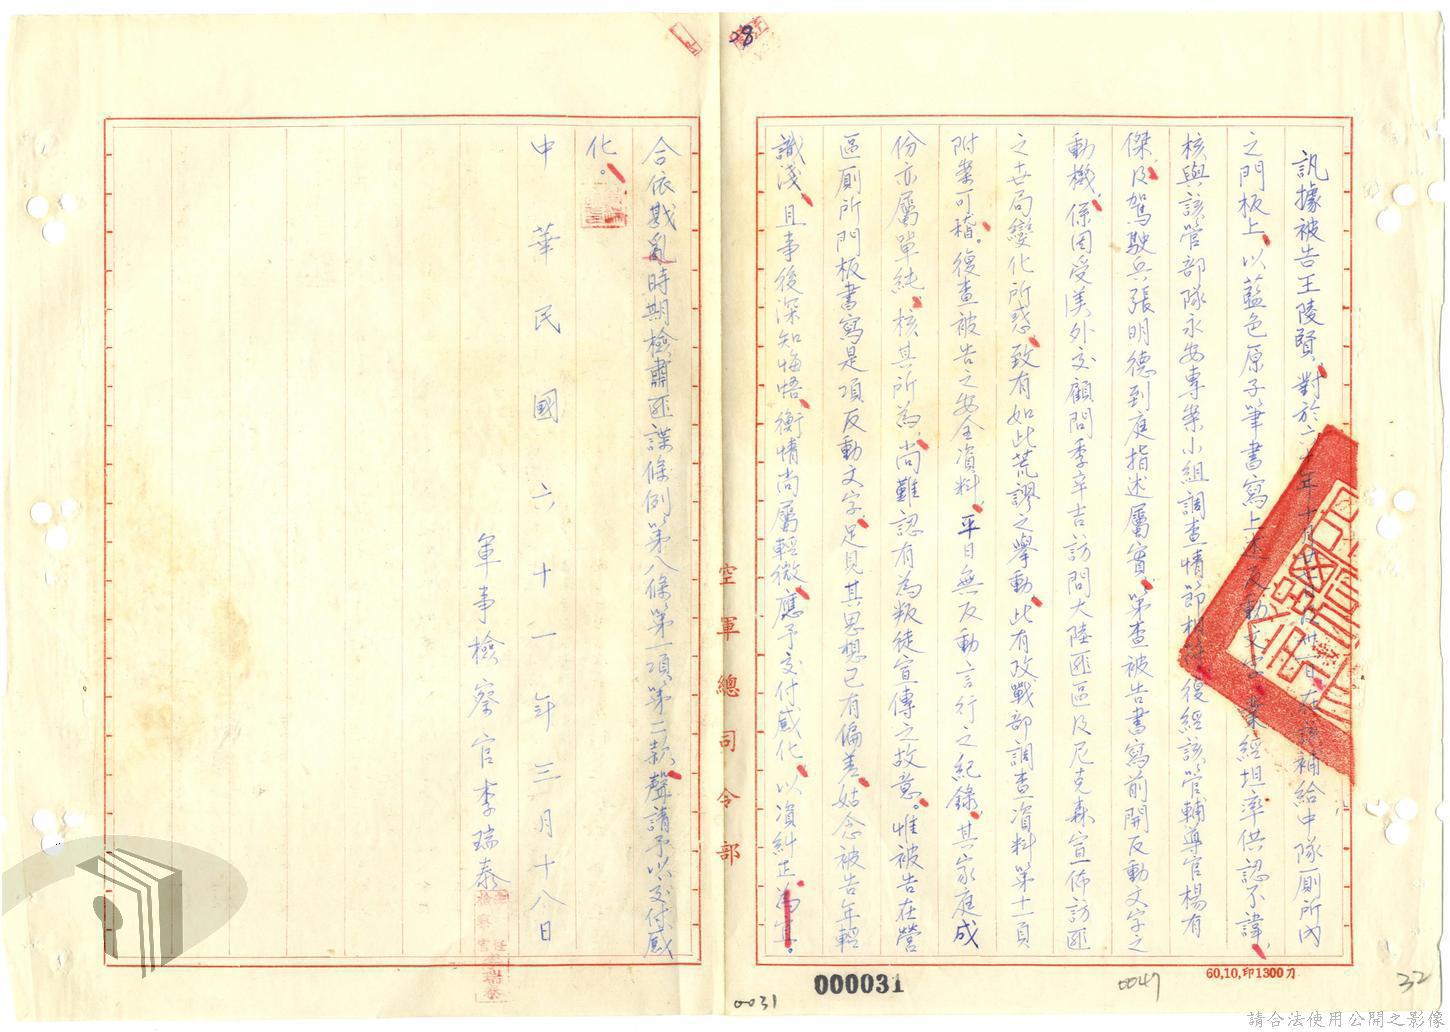 訊據被告王陵賢，對於六十年十月卅一日在該補給中隊廁所內
之門板上，以藍色原子筆書寫上述反動文字，業經坦率供認不諱，
核與該管部隊永安專案小組調查情節相符，復經該管輔導官楊有
傑，及駕駛兵張明德到庭指述屬實。第查被告書寫前開反動文字之
動機，係因受美外交顧問季辛吉訪問大陸匪區及尼克森宣佈訪匪
之世局變化所惑，致有如此荒謬之舉動，此有政戰部調查資料第十一頁
附案可稽。復查被告之安全資料，平日無反動言行之紀錄，其家庭成
份亦屬單純，核其所為，尚難認有為叛徒宣傳之故意。惟被告在營
區廁所門板書寫是項反動文字，足見其思想已有偏差，姑念被告年輕
識淺，且事後深知悔悟，衡情尚屬輕微，應予交付感化，以資糾正為宜。
空軍總司令部
合依戡亂時期檢肅匪諜條例第八條第一項第二款，聲請予以交付感
化。
中華民國六十一年三月十八日
軍事檢察官李瑞泰
38
000031
0031
0047
60,10,印1300刀
32
請合法使用公開之影像